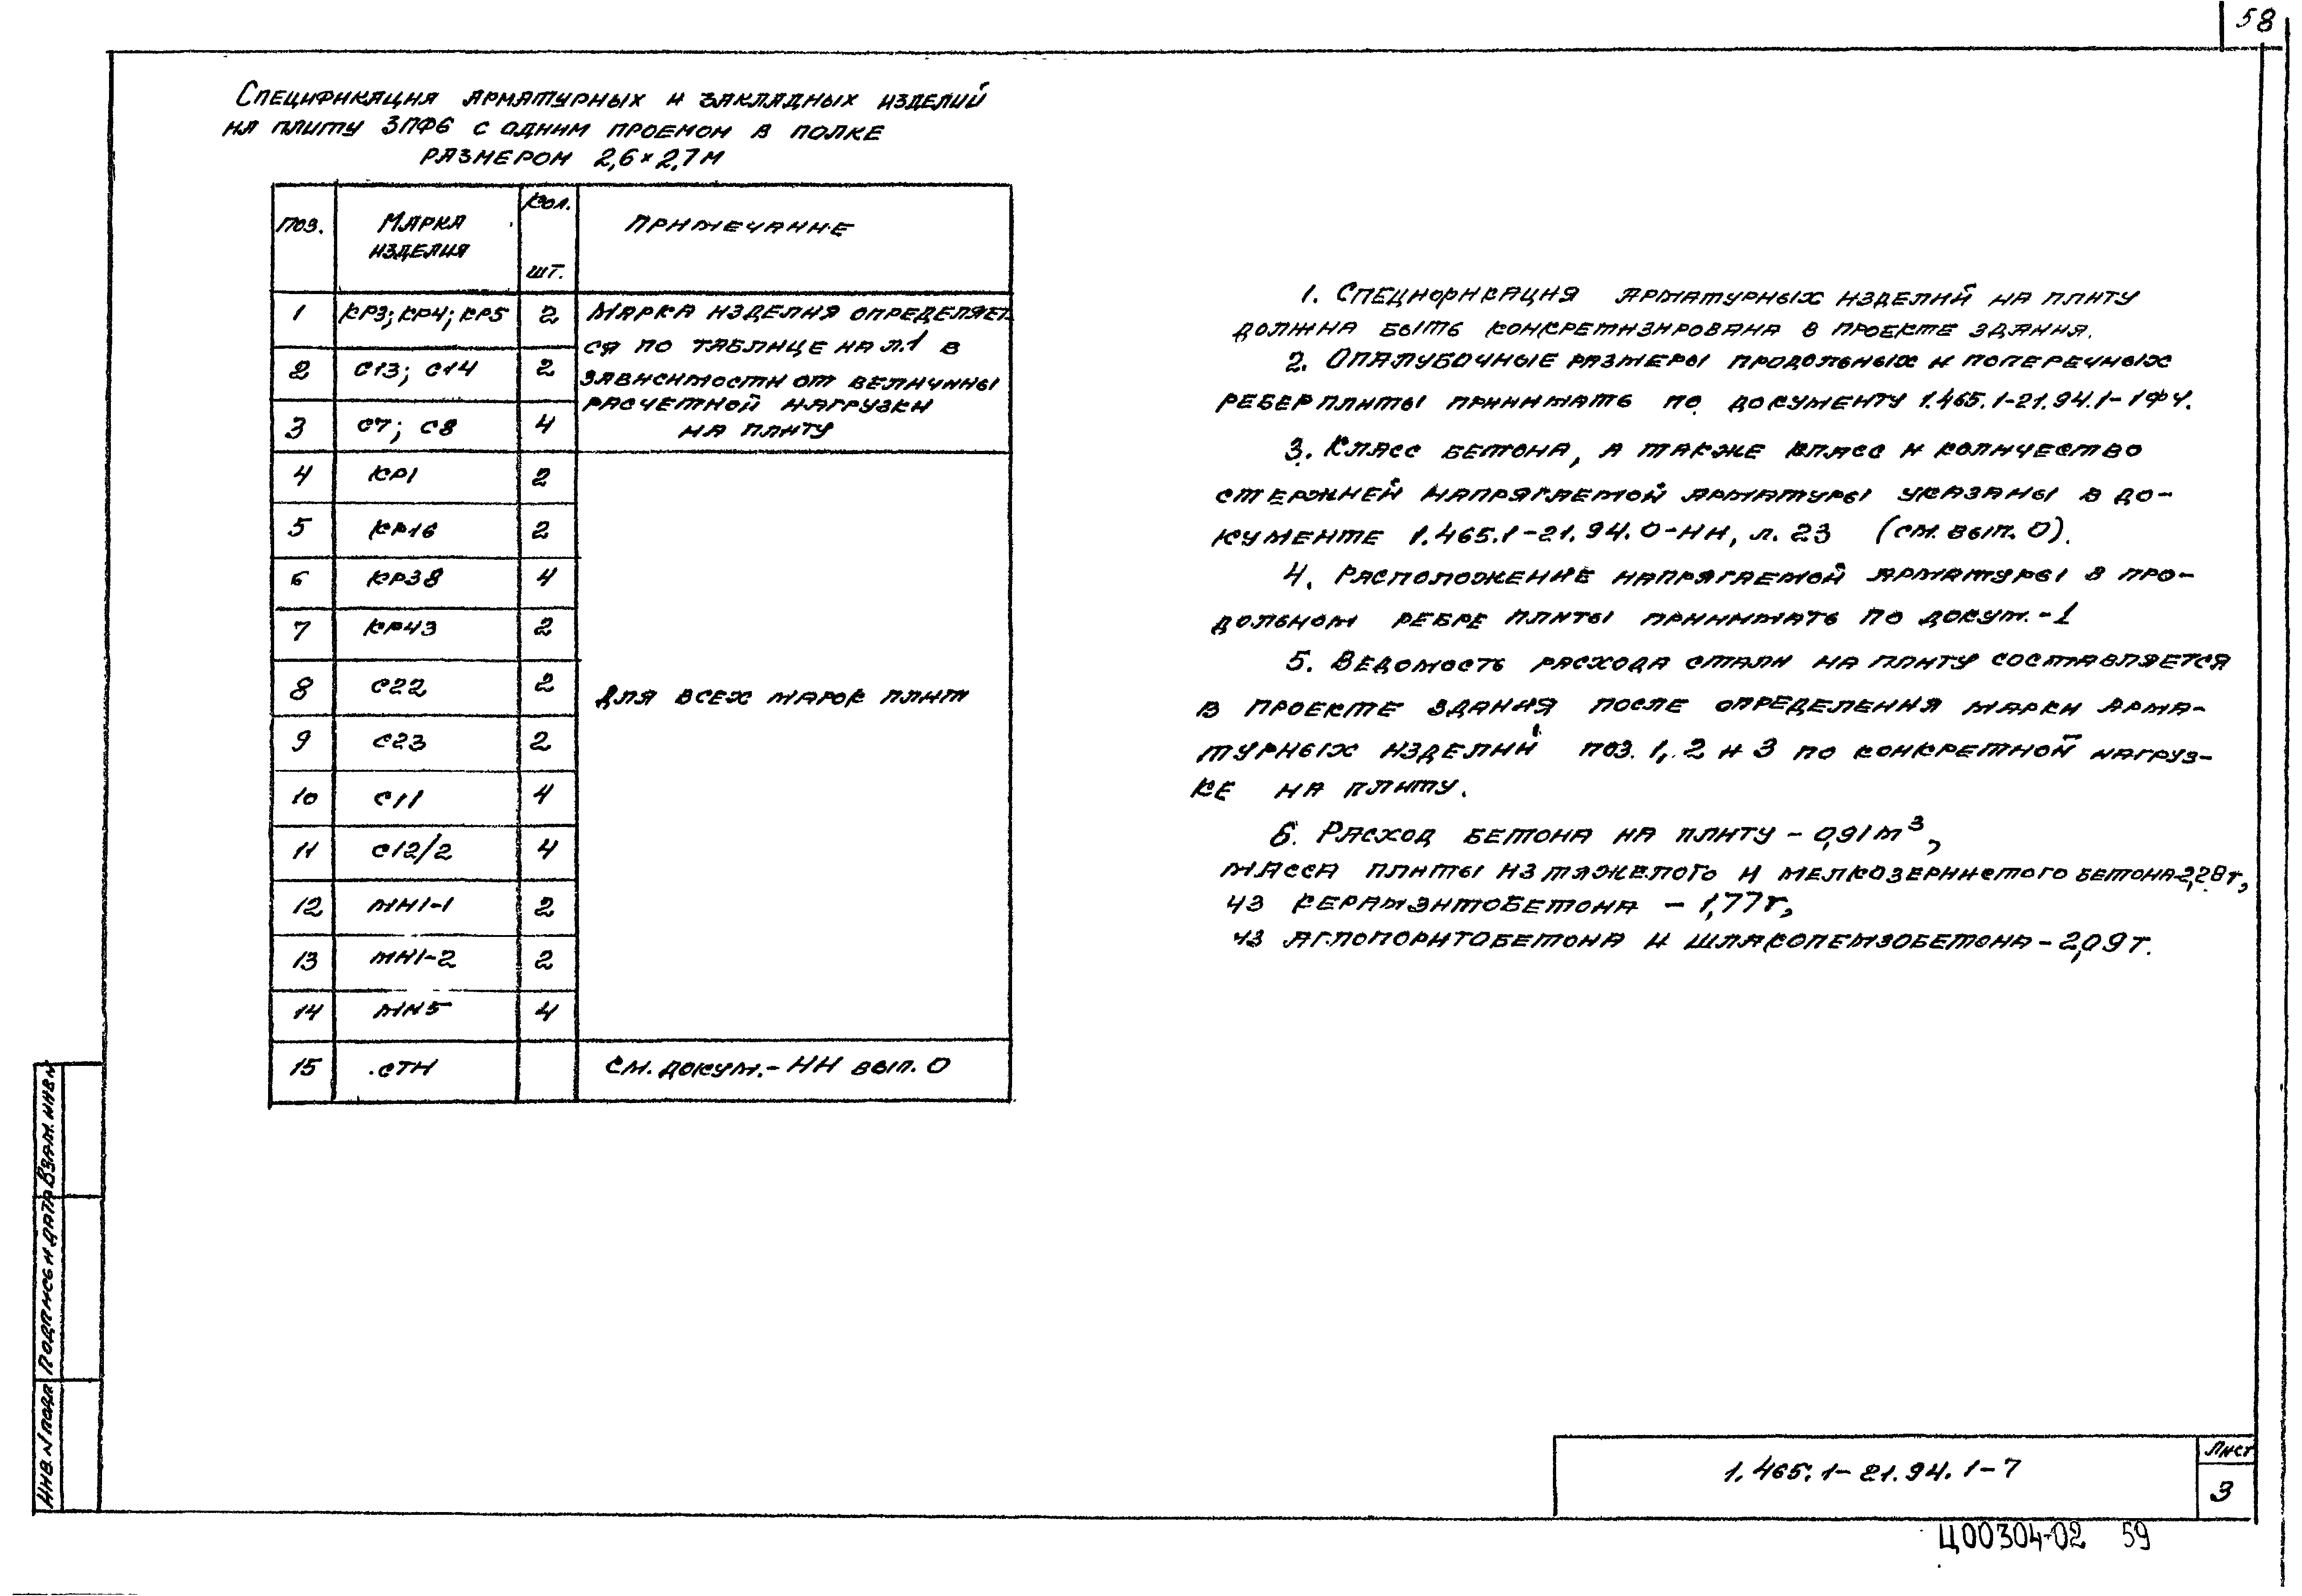 58
Спецификация арматурных и закладных изделий
на плиту 3ПФ6 с одним проемом в полке
размером 2,6×2,7м
Поз.
Марка изделия
Кол. шт.
Примечание
1 КР3; КР4; КР5 2 Марка изделия определяет
ся по таблице на л.1 в
2 С13; С14 2 зависимости от величины
расчетной нагрузки
3 С7; С8 4 на плиту
4 КР1 2
5 КР16 2
6 КР38 4
7 КР43 2
8 С22 2 Для всех марок плит
9 С23 2
10 С11 4
11 С12/2 4
12 МН1-1 2
13 МН1-2 2
14 МН5 4
15 СТН См. докум.-НН вып. 0
1. Спецификация арматурных изделий на плиту
должна быть конкретизирована в проекте здания.
2. Опалубочные размеры продольных и поперечных
ребер плиты принимать по документу 1.465.1-21.94.1-1ФЧ.
3. Класс бетона, а также класс и количество
стержней напрягаемой арматуры указаны в до-
кументе 1.465.1-21.94.0-НН, л. 23 (см. вып. 0).
4. Расположение напрягаемой арматуры в про-
дольном ребре плиты принимать по докум. -1
5. Ведомость расхода стали на плиту составляется
в проекте здания после определения марки арма-
турных изделий поз. 1, 2 и 3 по конкретной нагруз-
ке на плиту.
6. Расход бетона на плиту - 0,91м³,
масса плиты из тяжелого и мелкозернистого бетона-2,28т,
из керамзитобетона - 1,77т,
из аглопоритобетона и шлакопемзобетона-2,09т.
Взам. инв.№
Подпись и дата
Инв. № подл
1.465.1-21.94.1-7
Лист
3
Ц00304-02 59